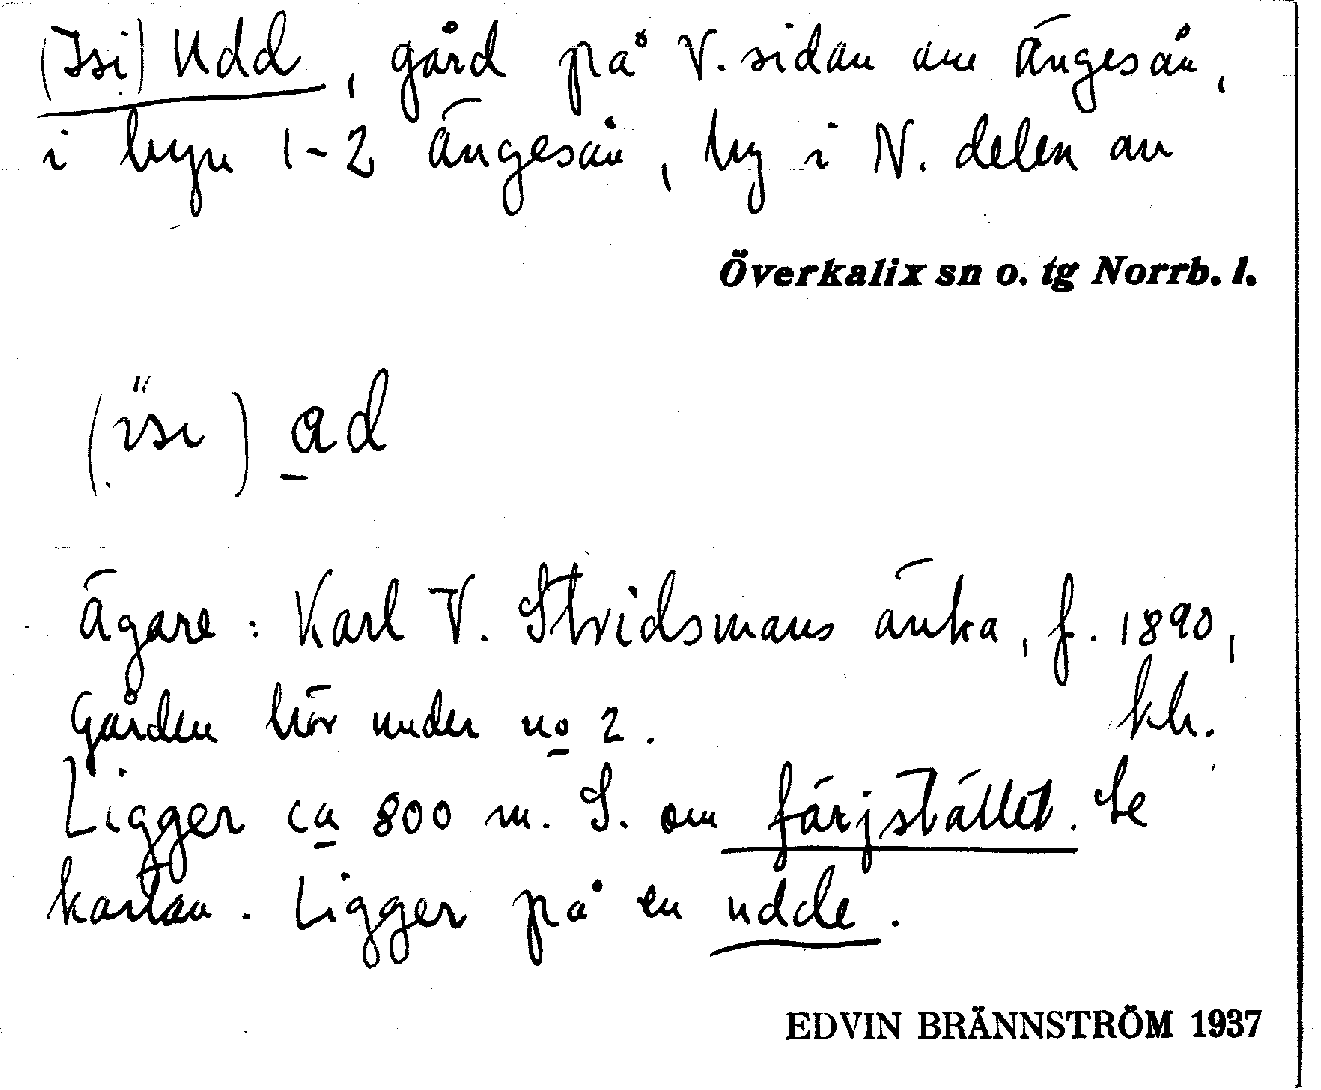 (Isi) Udd, gård på V. sidan om Ängesån,
i byn 1-2 Ängesån, by i N. delen av
Överkalix sn o. tg Norrb. l.
(ɩ̈sɩ) ad
Ägare: Karl V. Stridsmans änka, f. 1890,
Gården hör under no 2. kh.
Ligger ca 800 m. S. om färjstället. Se
kartan. Ligger på en udde.
EDVIN BRÄNNSTRÖM 1937